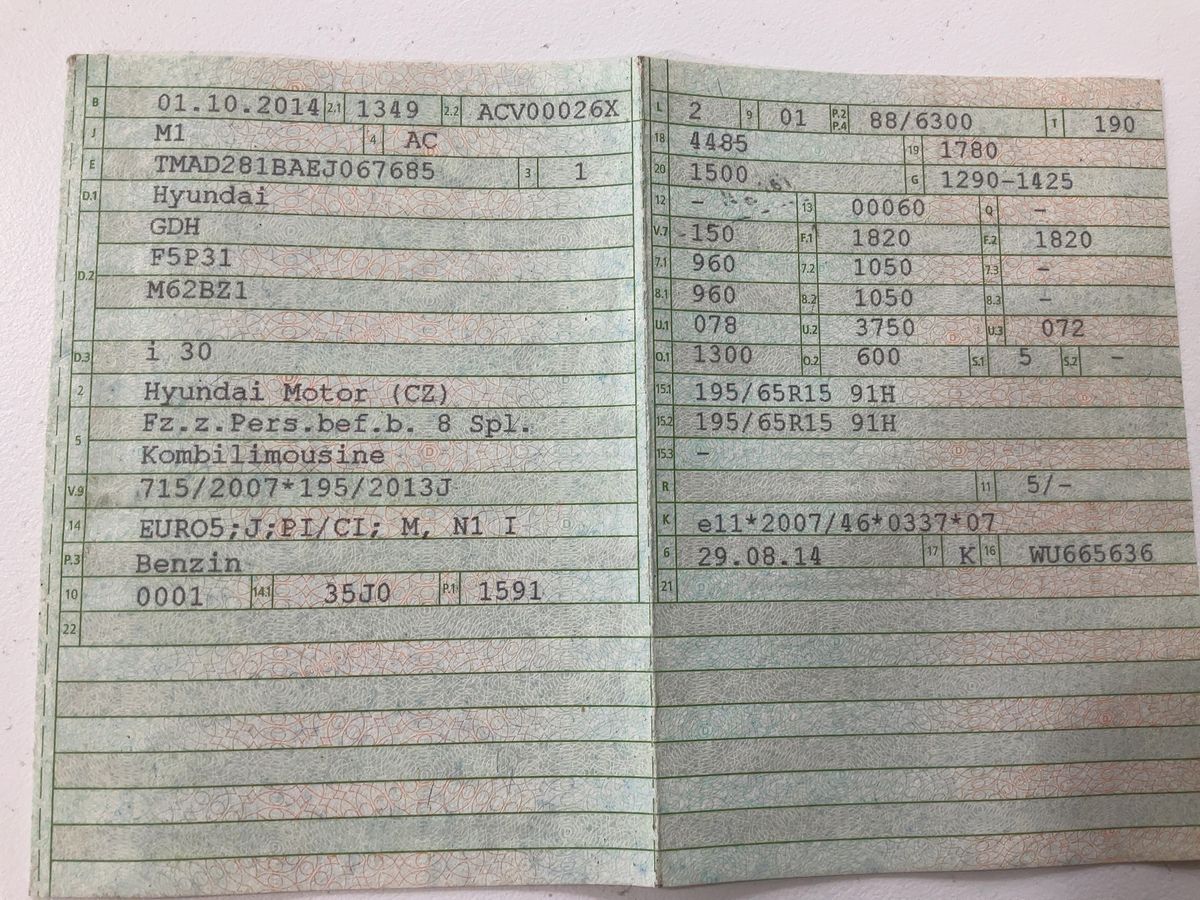 B 01.10.2014 2.1 1349 2.2 ACV00026X
J M1 4 AC
E TMAD281BAEJ067685 3 1
D.1 Hyundai
GDH
F5P31
D.2
M62BZ1
D.3 i 30
2 Hyundai Motor (CZ)
Fz.z.Pers.bef.b. 8 Spl.
5
Kombilimousine
V.9 715/2007*195/2013J
14 EURO5;J;PI/CI; M, N1 I
P.3 Benzin
10 0001 14.1 35J0 P.1 1591
22
L 2 9 01 P.2 P.4 88/6300 T 190
18 4485 19 1780
20 1500 G 1290-1425
12 - 13 00060 Q -
V.7 150 F.1 1820 F.2 1820
7.1 960 7.2 1050 7.3 -
8.1 960 8.2 1050 8.3 -
U.1 078 U.2 3750 U.3 072
O.1 1300 O.2 600 S.1 5 S.2 -
15.1 195/65R15 91H
15.2 195/65R15 91H
15.3 -
R 11 5/-
K e11*2007/46*0337*07
6 29.08.14 17 K 16 WU665636
21